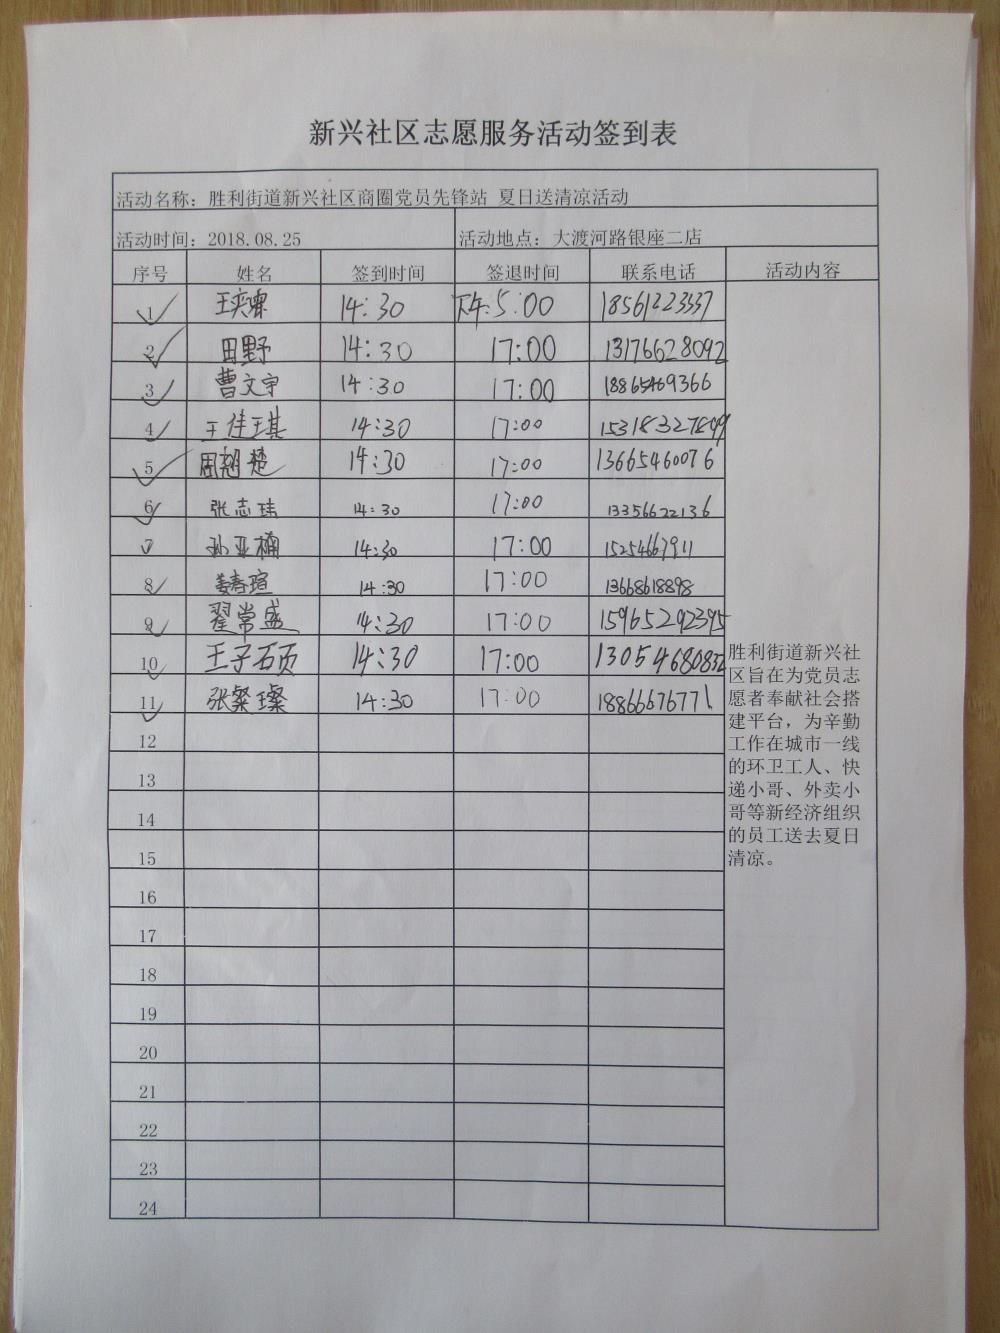 新兴社区志愿服务活动签到表
活动名称：胜利街道新兴社区商圈党员先锋站 夏日送清凉活动
活动时间：2018.08.25 活动地点：大渡河路银座二店
序号 姓名 签到时间 签退时间 联系电话 活动内容
1 王奕睿 14:30 下午:5:00 18561223337
2 田野 14:30 17:00 13176628092
3 曹文宇 14:30 17:00 18865469366
4 王佳琪 14:30 17:00 15318327899
5 周翹楚 14:30 17:00 13665460076
6 张志玮 14:30 17:00 13356622136
7 孙亚楠 14:30 17:00 15254667911
8 姜春瑄 14:30 17:00 13668618898
9 翟常盛 14:30 17:00 15965292395
10 王子硕 14:30 17:00 13054680832
11 张粲璨 14:30 17:00 18866676771
胜利街道新兴社
区旨在为党员志
愿者奉献社会搭
建平台，为辛勤
工作在城市一线
的环卫工人、快
递小哥、外卖小
哥等新经济组织
的员工送去夏日
清凉。
12
13
14
15
16
17
18
19
20
21
22
23
24